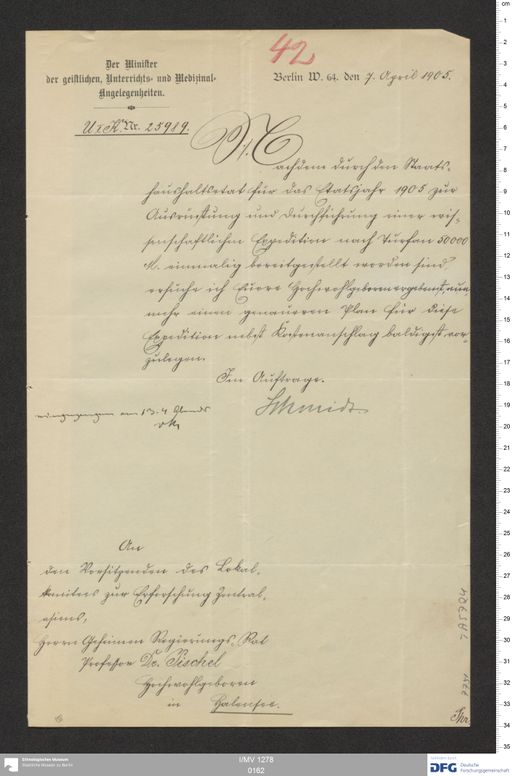 42
Der Minister
der geistlichen, Unterrichts- und Medizinal-
Angelegenheiten.
Berlin W. 64. den 7. April 1905.
U I K Nr. 25989.
Nachdem durch den Staats-
haushaltsetat für das Etatsjahr 1905 zur
Ausrüstung und Durchführung einer wis-
senschaftlichen Expedition nach Turfan 50000
M. einmalig bereitgestellt worden sind,
ersuche ich Euere Hochwohlgeboren ergebenst, nun-
mehr einen genaueren Plan für diese
Expedition nebst Kostenanschlag baldigst vor-
zulegen.
Im Auftrage.
Schmidt
eingegangen am 13.4 Abends
An
den Vorsitzenden des Lokal-
komitees zur Erforschung Zentral-
asiens,
Herrn Geheimen Regierungs-Rat
Professor Dr. Pischel
Hochwohlgeboren
in Halensee.
Ethnologisches Museum
Staatliche Museen zu Berlin
I/MV 1278
0162
DFG Deutsche
Forschungsgemeinschaft